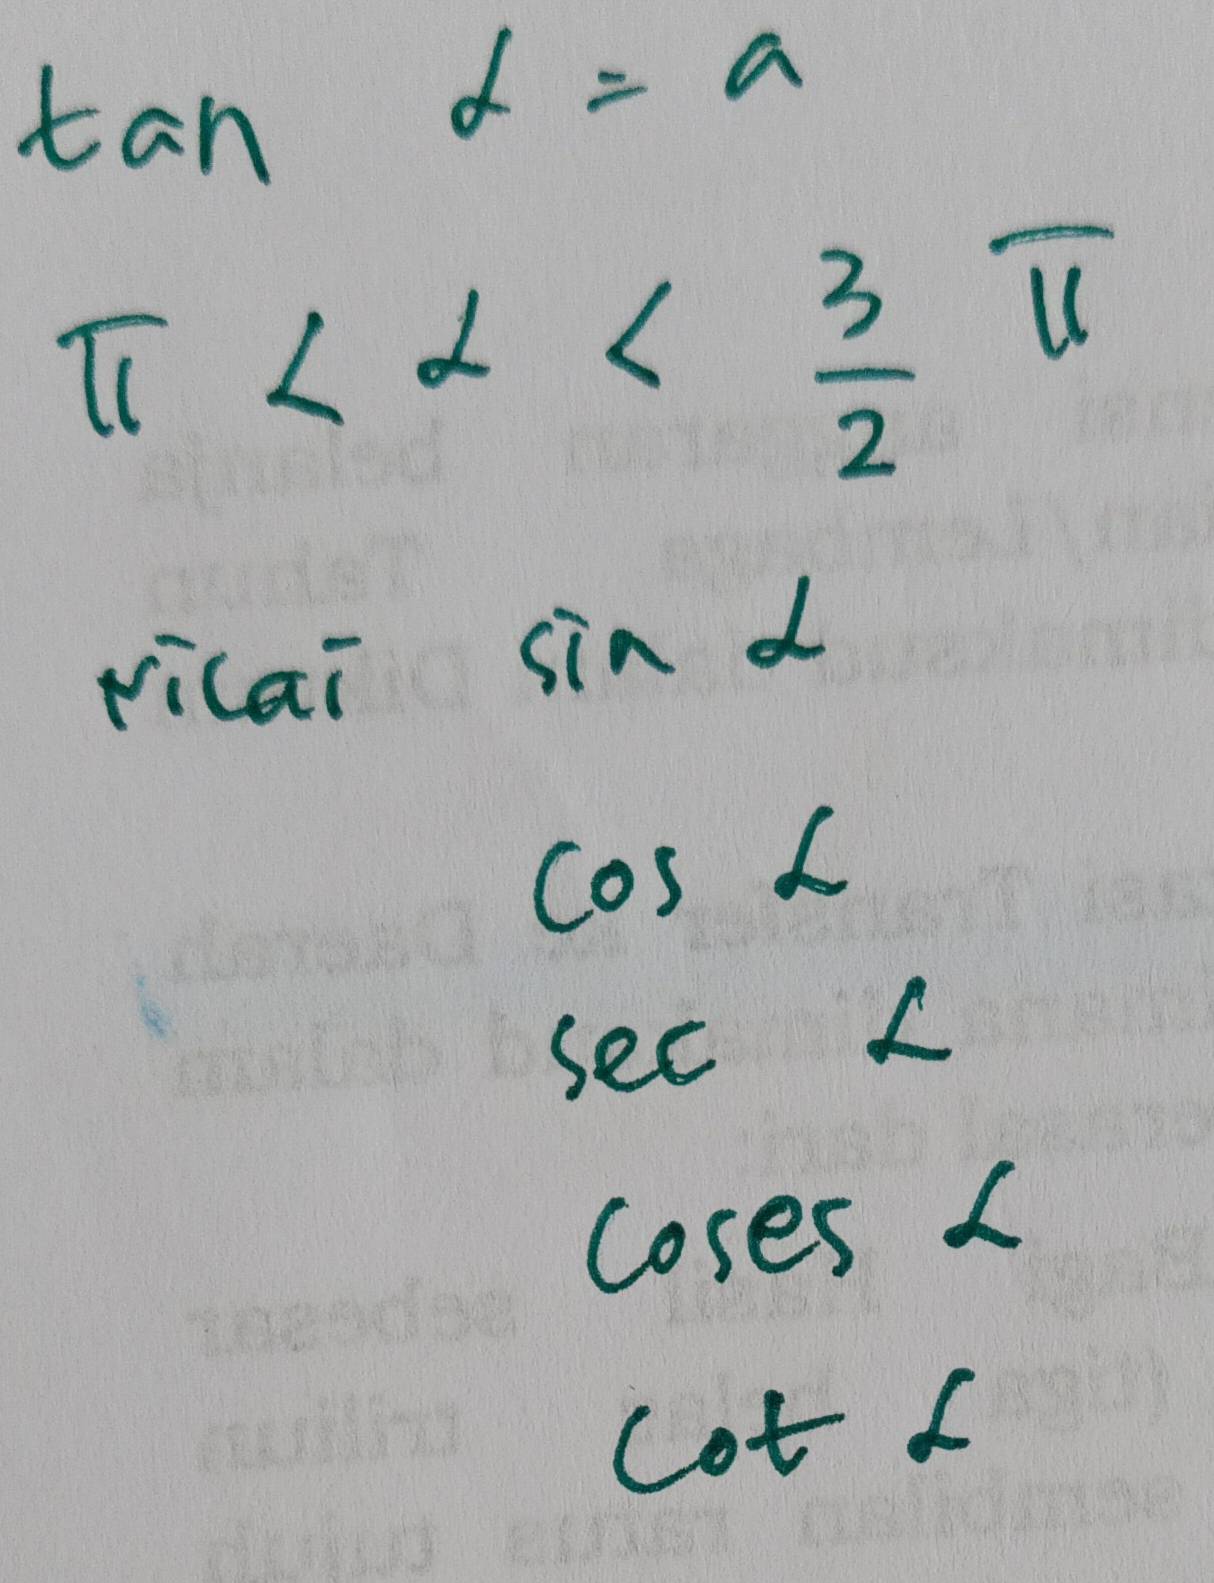 tan α = a
π < α < 3/2 π
Nilai sin α
cos α
sec α
coses α
cot α